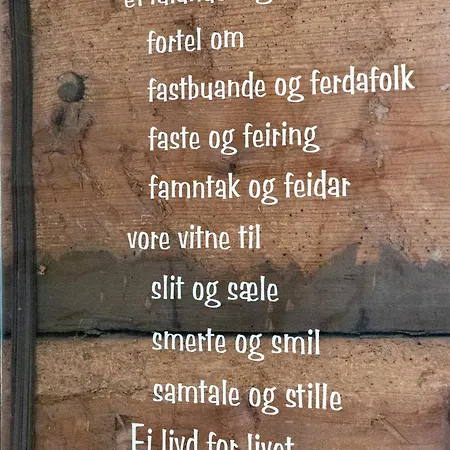 fortel om
fastbuande og ferdafolk
faste og feiring
famntak og feidar
vore vitne til
slit og sæle
smerte og smil
samtale og stille
Ei livd for livet